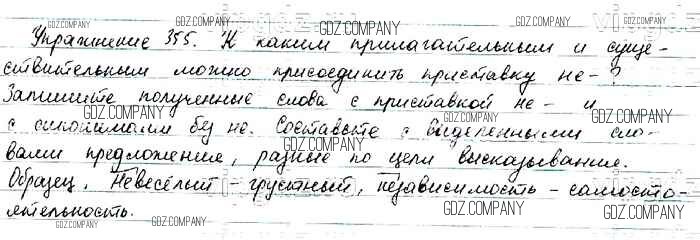 GDZ.COMPANY GDZ.COMPANY GDZ.COMPANY
Упражнение 355. К каким прилагательным и суще-
ствительным можно присоединить приставку не-?
Запишите полученные слова с приставкой не- и
GDZ.COMPANY GDZ.COMPANY
с синонимами без не. Составьте с выделенными сло-
GDZ.COMPANY GDZ.COMPANY
вами предложения, разные по цели высказывания.
Образец. Невесёлый - грустный, независимость - самосто-
ятельность.
GDZ.COMPANY GDZ.COMPANY GDZ.COMPANY
GDZ.COMPANY